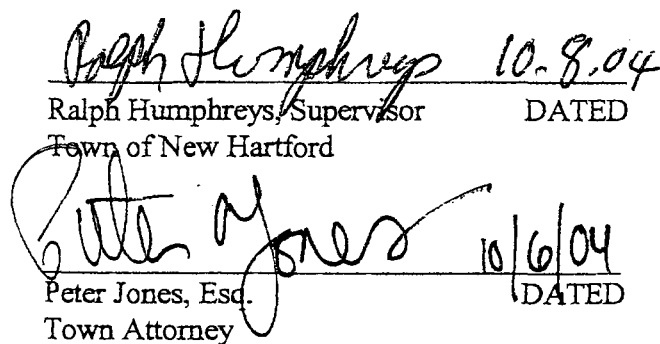 Ralph Humphreys 10.8.04
Ralph Humphreys, Supervisor DATED
Town of New Hartford
Peter M Jones 10/6/04
Peter Jones, Esq. DATED
Town Attorney